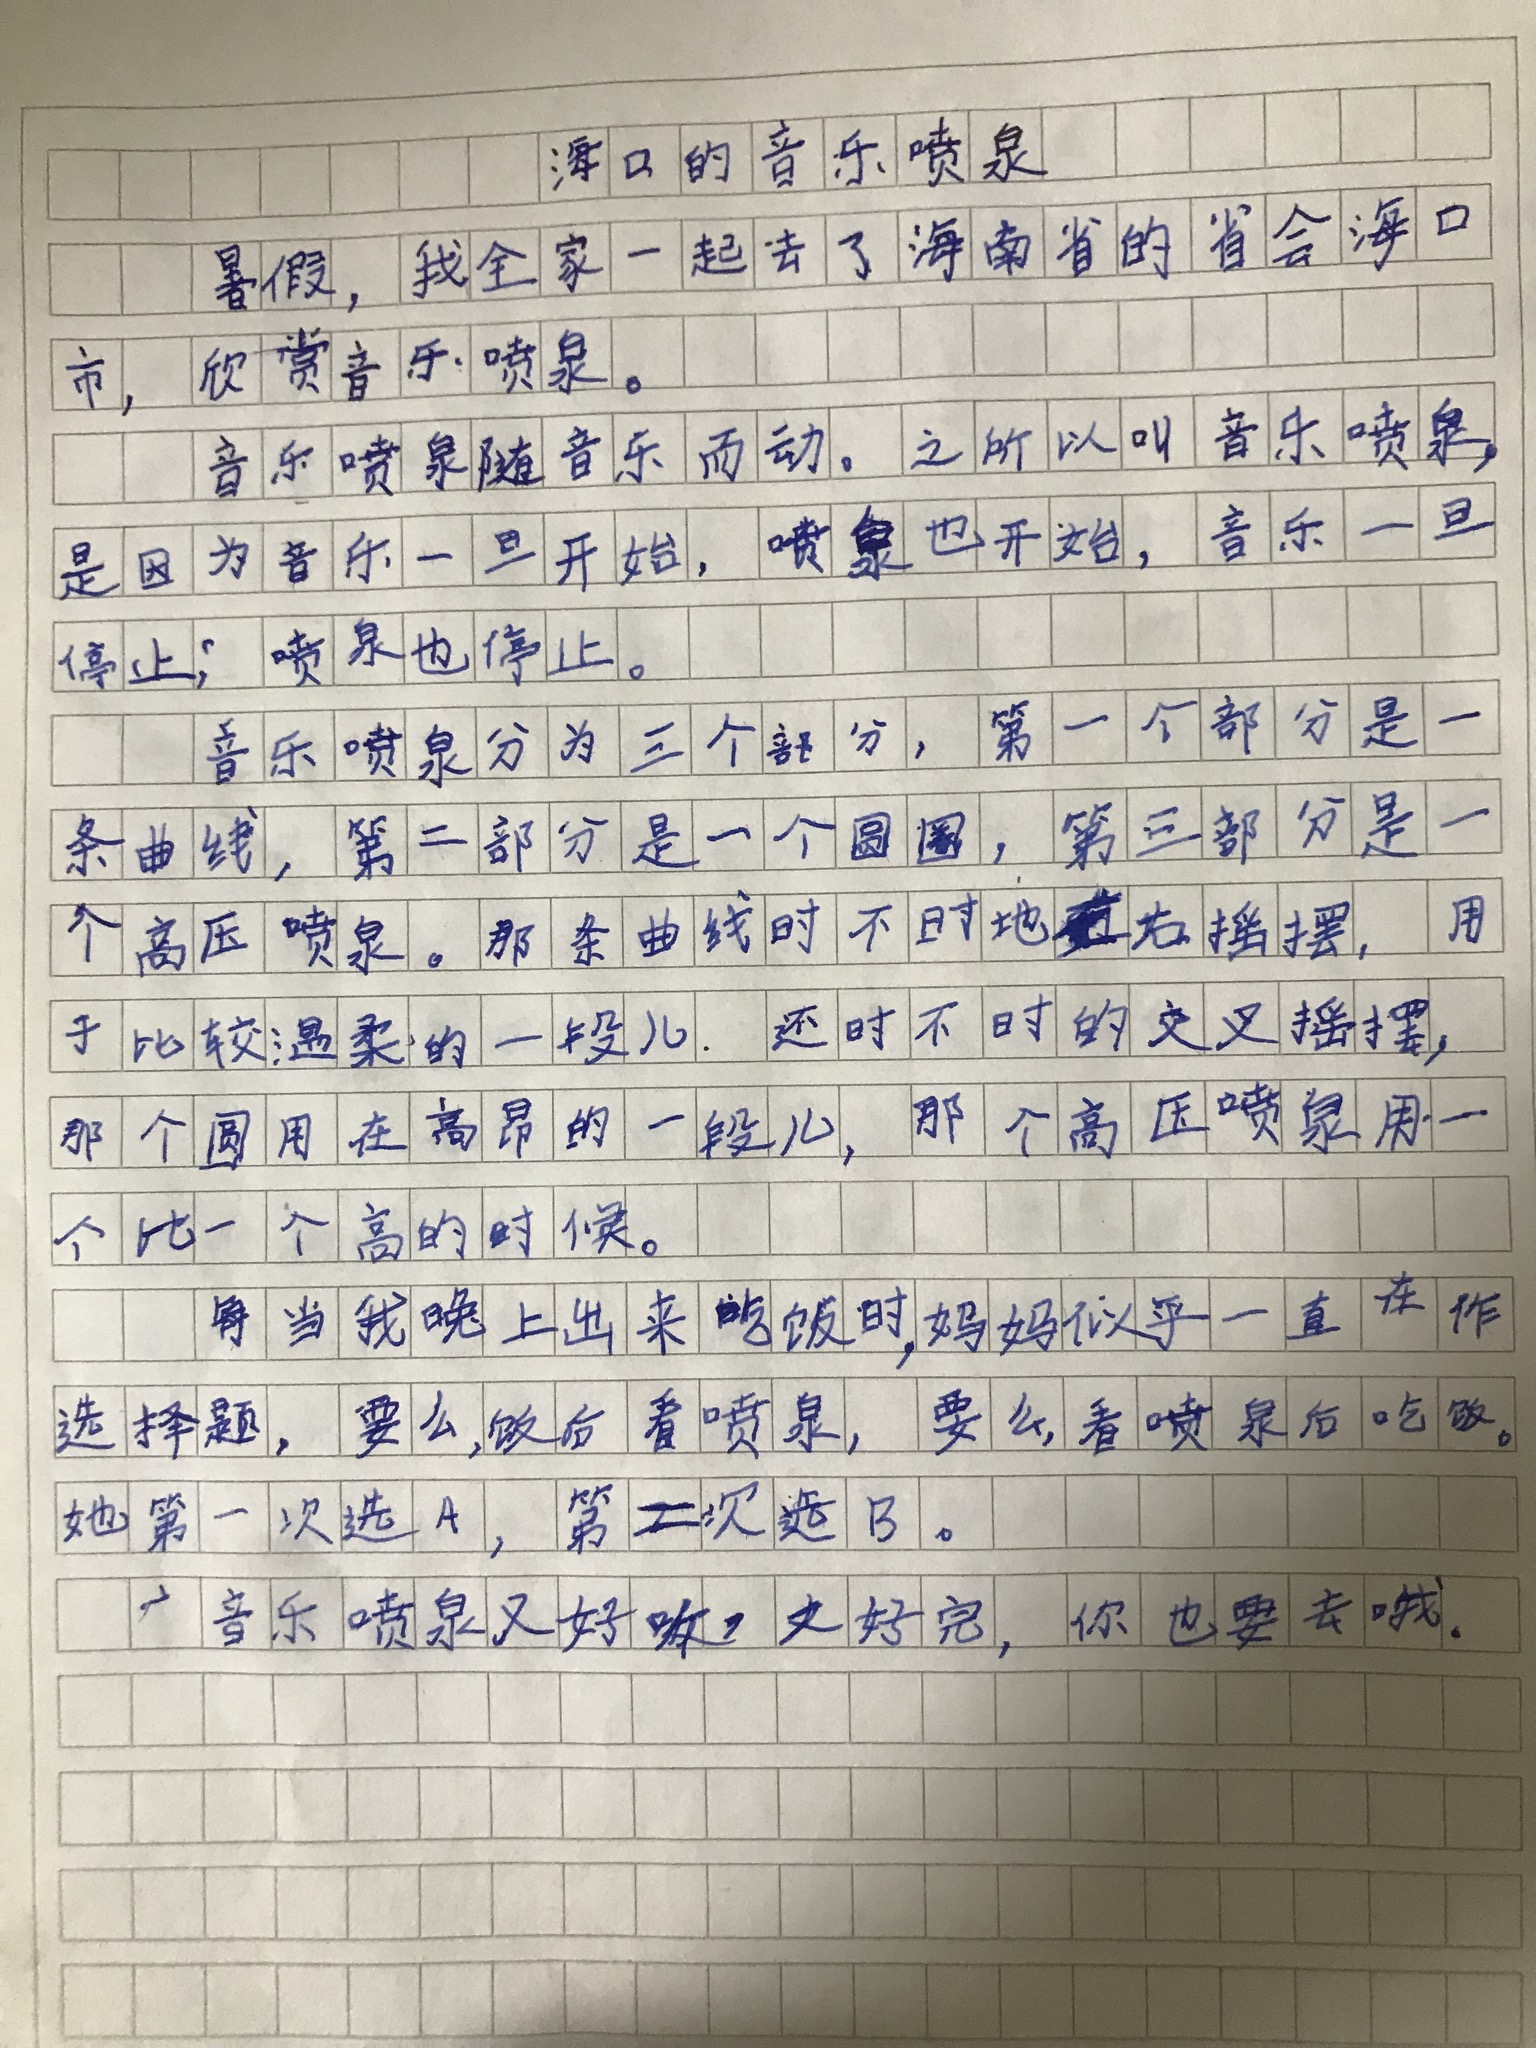 海口的音乐喷泉
暑假，我全家一起去了海南省的省会海口
市，欣赏音乐喷泉。
音乐喷泉随音乐而动。之所以叫音乐喷泉，
是因为音乐一旦开始，喷泉也开始，音乐一旦
停止，喷泉也停止。
音乐喷泉分为三个部分，第一个部分是一
条曲线，第二部分是一个圆圈，第三部分是一
个高压喷泉。那条曲线时不时地右摇摆，用
于比较温柔的一段儿．还时不时的交叉摇摆，
那个圆用在高昂的一段儿，那个高压喷泉用一
个比一个高的时候。
每当我晚上出来吃饭时，妈妈似乎一直在作
选择题，要么，饭后看喷泉，要么，看喷泉后吃饭。
她第一次选A，第二次选B。
音乐喷泉又好，又好完，你也要去哦．